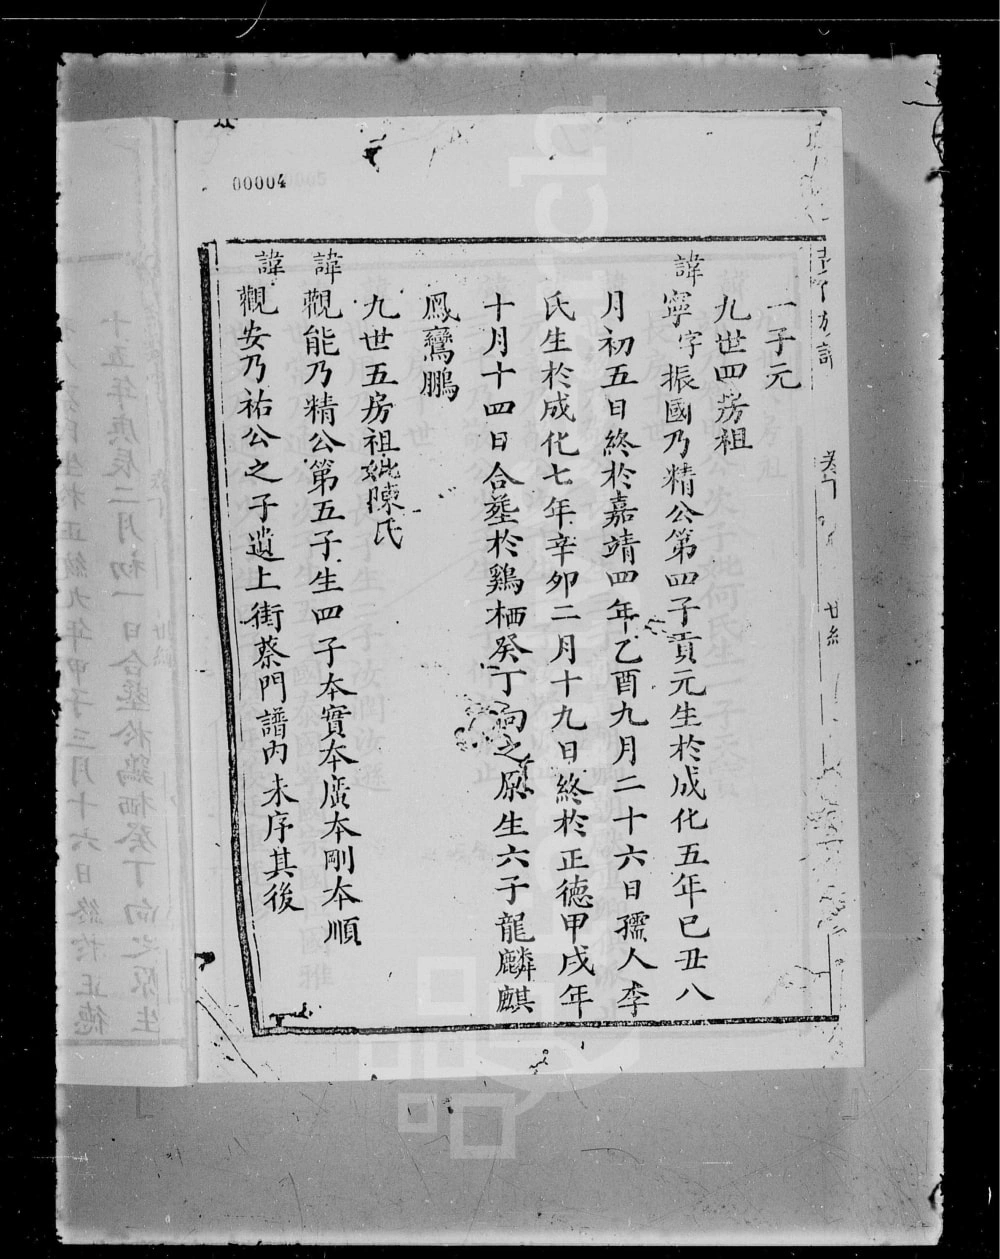 00004
一子元
九世四房祖
諱寧字振國乃精公第四子貢元生於成化五年已丑八
月初五日終於嘉靖四年乙酉九月二十六日孺人李
氏生於成化七年辛卯二月十九日終於正德甲戌年
十月十四日合塟於鷄栖癸丁向之原生六子龍麟麒
鳳鸞鵬
九世五房祖妣陳氏
諱觀能乃精公第五子生四子本實本廣本剛本順
諱觀安乃祐公之子遺上街蔡門譜內未序其後